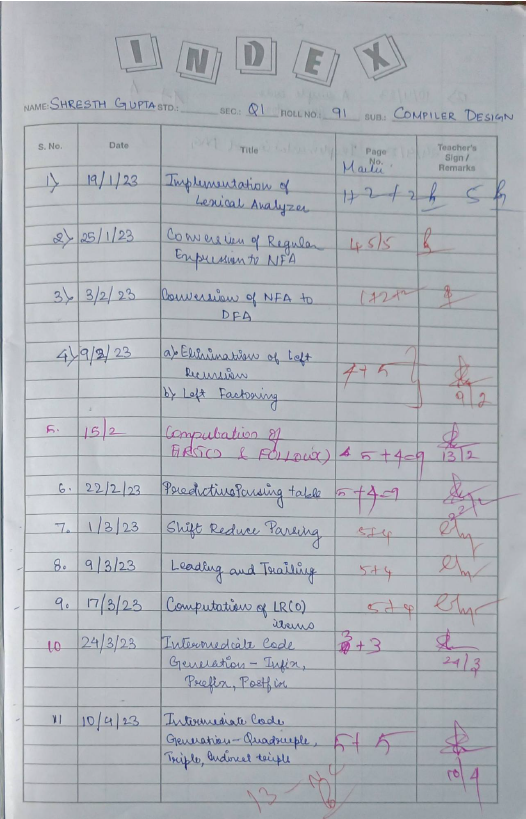 INDEX
NAME: SHRESTH GUPTA STD.: SEC.: Q1 ROLL NO.: 91 SUB.: COMPILER DESIGN
S. No. Date Title Page No. Teacher's Sign / Remarks
Marks
1) 19/1/23 Implementation of
Lexical Analyzer
2) 25/1/23 Conversion of Regular 4 5/5
Expression to NFA
3) 3/2/23 Conversion of NFA to 1+2+2
DFA
4) 9/2/23 a) Elimination of Left
Recursion 4+5
b) Left Factoring 9/2
5. 15/2 Computation of
FIRST() & FOLLOW() 5+4=9 13/2
6. 22/2/23 Predictive Parsing table 5+4=9 22/2
7. 1/3/23 Shift Reduce Parsing 5+4
8. 9/3/23 Leading and Trailing 5+4
9. 17/3/23 Computation of LR(0) 5+4
items
10 24/3/23 Intermediate Code 3+3
Generation - Infix, 24/3
Prefix, Postfix
11 10/4/23 Intermediate Code
Generation - Quadruple, 5+5
Triple, Indirect triple
10/4